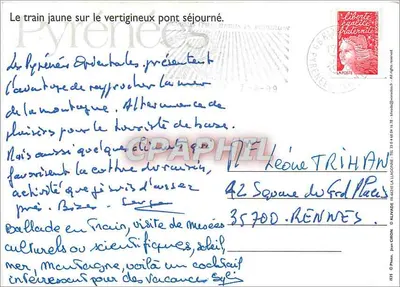 Le train jaune sur le vertigineux pont séjourné.
Pyrénées
liberté
égalité
fraternité
LA POSTE
Les Pyrénées Orientales présentent
l'avantage de rapprocher la mer
de la montagne. Alternance de
plaisirs pour le touriste de base.
Mais aussi quelques éléments que
favorisent la culture du raisin,
activité que je suis d'assez
près. Bises. Serge
Ballade en Train, visite de musées
culturels ou scientifiques, soleil
mer, Montagne, voilà un cocktail
intéressant pour des vacances
PHILCARTO
Léone TRIHAN
42 Square du Gd Placis
35700. RENNES.